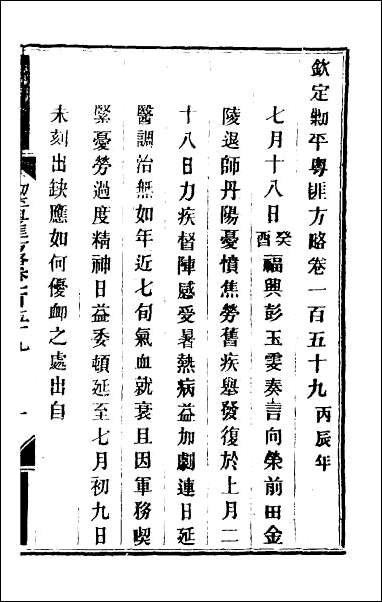 欽定勦平粵匪方略卷一百五十九丙辰年
七月十八日癸酉福興彭玉雯奏言向榮前因金
陵退師丹陽憂憤焦勞舊疾舉發復於上月二
十八日力疾督陣感受暑熱病益加劇連日延
醫調治無如年近七旬氣血就衰且因軍務喫
緊憂勞過度精神日益委頓延至七月初九日
未刻出缺應如何優卹之處出自